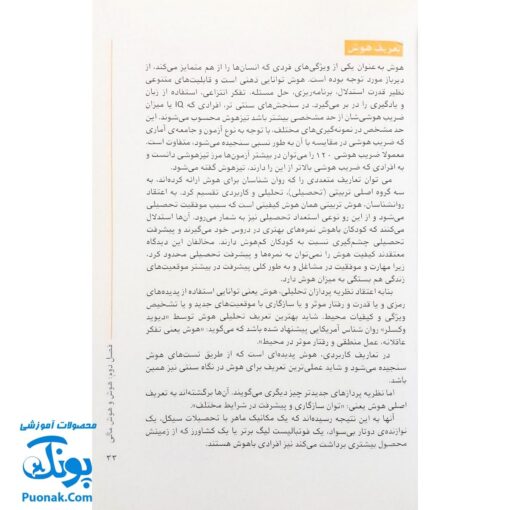 تعریف هوش
هوش به‌عنوان یکی از ویژگی‌های فردی که انسان‌ها را از هم متمایز می‌کند، از
دیرباز مورد توجه بوده است. هوش توانایی ذهنی است و قابلیت‌های متنوعی
نظیر قدرت استدلال، برنامه‌ریزی، حل مسئله، تفکر انتزاعی، استفاده از زبان
و یادگیری را در بر می‌گیرد. در سنجش‌های سنتی تر، افرادی که IQ یا میزان
ضریب هوشی‌شان از حد مشخصی بیشتر باشد تیزهوش محسوب می‌شوند. این
حد مشخص در نمونه‌گیری‌های مختلف، با توجه به نوع آزمون و جامعه‌ی آماری
که ضریب هوشی در مقایسه با آن به طور نسبی سنجیده می‌شود، متفاوت است.
معمولا ضریب هوشی ۱۲۰ را می‌توان در بیشتر آزمون‌ها مرز تیزهوشی دانست و
به افرادی که ضریب هوشی بالاتر از این را دارند، تیزهوش گفته می‌شود.
می توان تعاریف متعددی را که روان شناسان برای هوش ارائه کرده‌اند، به
سه گروه اصلی تربیتی (تحصیلی)، تحلیلی و کاربردی تقسیم کرد. به اعتقاد
روانشناسان، هوش تربیتی همان هوش کیفیتی است که سبب موفقیت تحصیلی
می‌شود و از این رو نوعی استعداد تحصیلی نیز به شمار می‌رود. آن‌ها استدلال
می‌کنند که کودکان باهوش نمره‌های بهتری در دروس خود می‌گیرند و پیشرفت
تحصیلی چشم‌گیری نسبت به کودکان کم‌هوش دارند. مخالفان این دیدگاه
معتقدند کیفیت هوش را نمی‌توان به نمره‌ها و پیشرفت تحصیلی محدود کرد،
زیرا مهارت و موفقیت در مشاغل و به طور کلی پیشرفت در بیشتر موقعیت‌های
زندگی هم بستگی به میزان هوش دارد.
بنا به اعتقاد نظریه پردازان تحلیلی، هوش یعنی توانایی استفاده از پدیده‌های
رمزی و یا قدرت و رفتار موثر و یا سازگاری با موقعیت‌های جدید و یا تشخیص
ویژگی و کیفیات محیط. شاید بهترین تعریف تحلیلی هوش توسط «دیوید
وکسلر» روان شناس آمریکایی پیشنهاد شده باشد که می‌گوید: «هوش یعنی تفکر
عاقلانه، عمل منطقی و رفتار موثر در محیط».
در تعاریف کاربردی، هوش پدیده‌ای است که از طریق تست‌های هوش
سنجیده می‌شود و شاید عملی‌ترین تعریف برای هوش در نگاه سنتی نیز همین
باشد.
اما نظریه پردازهای جدیدتر چیز دیگری می‌گویند. آن‌ها برگشته‌اند به تعریف
اصلی هوش یعنی: «توان سازگاری و پیشرفت در شرایط مختلف».
آنها به این نتیجه رسیده‌اند که یک مکانیک ماهر با تحصیلات سیکل، یک
نوازنده‌ی دوتار بی‌سواد، یک فوتبالیست لیگ برتر یا یک کشاورز که از زمینش
محصول بیشتری برداشت می‌کند نیز افرادی باهوش هستند.
فصل دوم: هوش و هوش مالی
۲۳
محصولات آموزشی
پونک
Puonak.Com